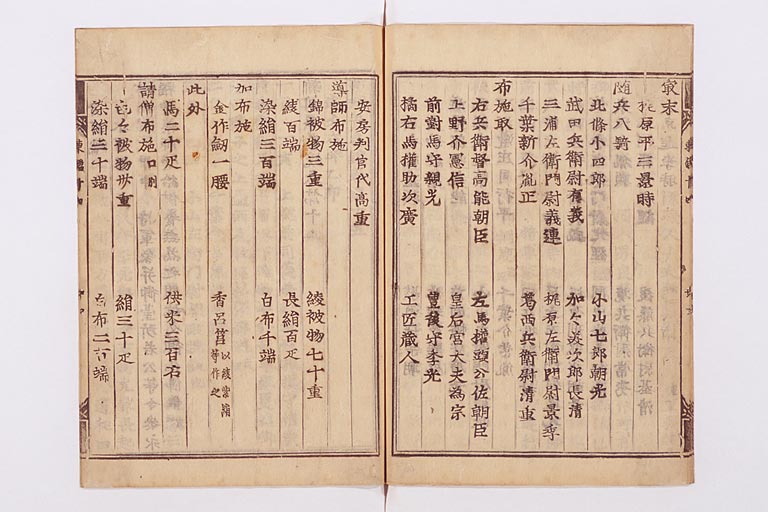 最末
梶原平三景時
随兵八騎
北條小四郎 小山七郎朝光
武田兵衛尉有義 加々美次郎長清
三浦左衛門尉義連 梶原左衛門尉景季
千葉新介胤正 葛西兵衛尉清重
布施取
右兵衛督高能朝臣 左馬權頭公佐朝臣
上野介憲信 皇后宮大夫為宗
前對馬守親光 豊後守季光
橘右馬權助次廣 工匠蔵人
安房判官代高重
導師布施
錦被物三重 綾被物七十重
綾百端 長絹百疋
染絹三百端 白布千端
加布施
金作劒一腰 香呂筥以綾紫絹等作之
此外
馬二十疋 供米三百石
請僧布施口別
色々被物卅重 絹三十疋
染絹三十端 白布二百端
東鑑